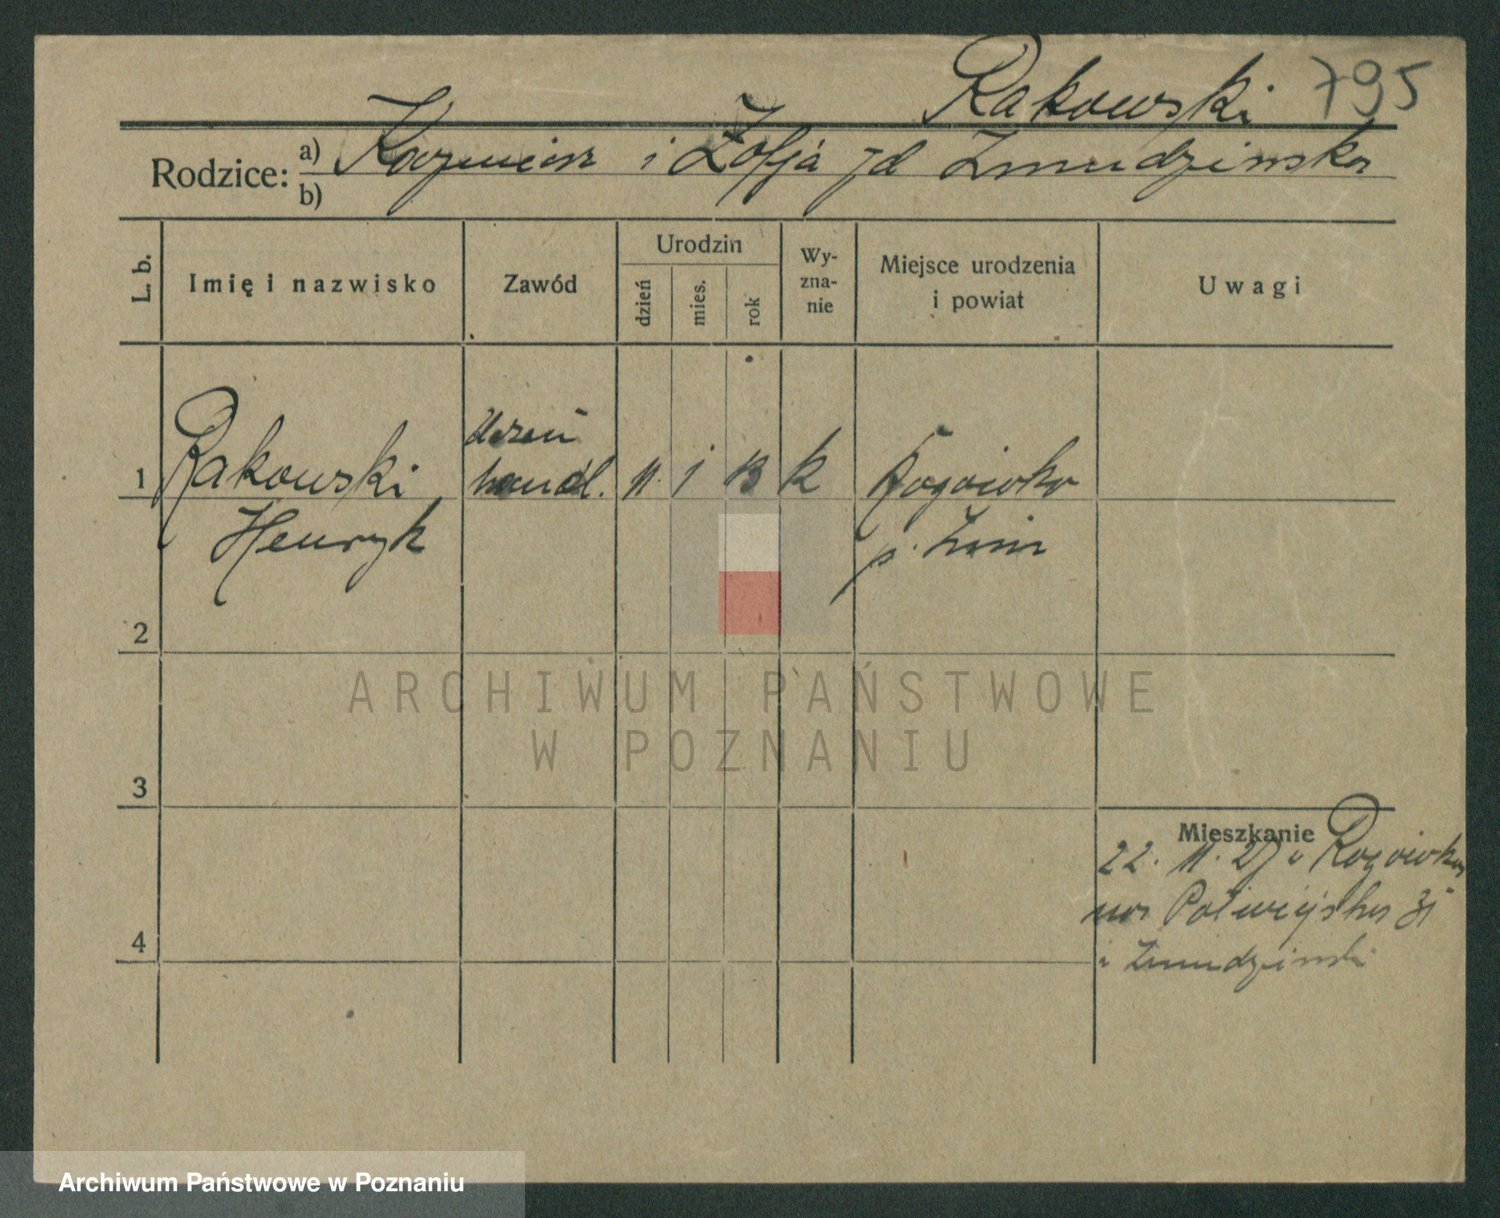 Rakowski 795
Rodzice: a) Kazimierz i Zofja zd Żmudzińska
b)
L. b. Imię i nazwisko Zawód Urodzin dzień mies. rok Wyzna-nie Miejsce urodzenia i powiat Uwagi
1 Rakowski Uczeń handl. 11. 1 13 k Rogówko
Henryk p. Żnin
2
3
4
Mieszkanie
22. 11. 27 v Rogówko
na Półwiejska 31
i Żmudziński
ARCHIWUM PAŃSTWOWE
W POZNANIU
Archiwum Państwowe w Poznaniu